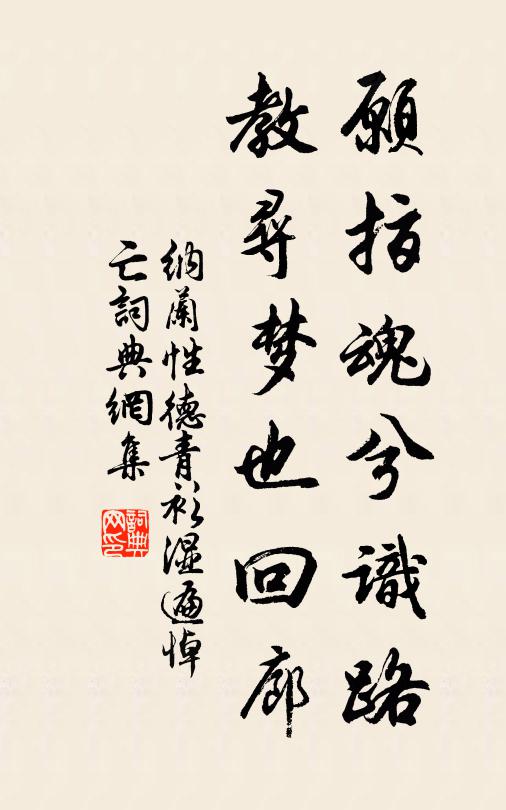 願指魂兮識路
教尋梦也回廊
納蘭性德青衫湿遍悼
亡詞典網集
詞典网印